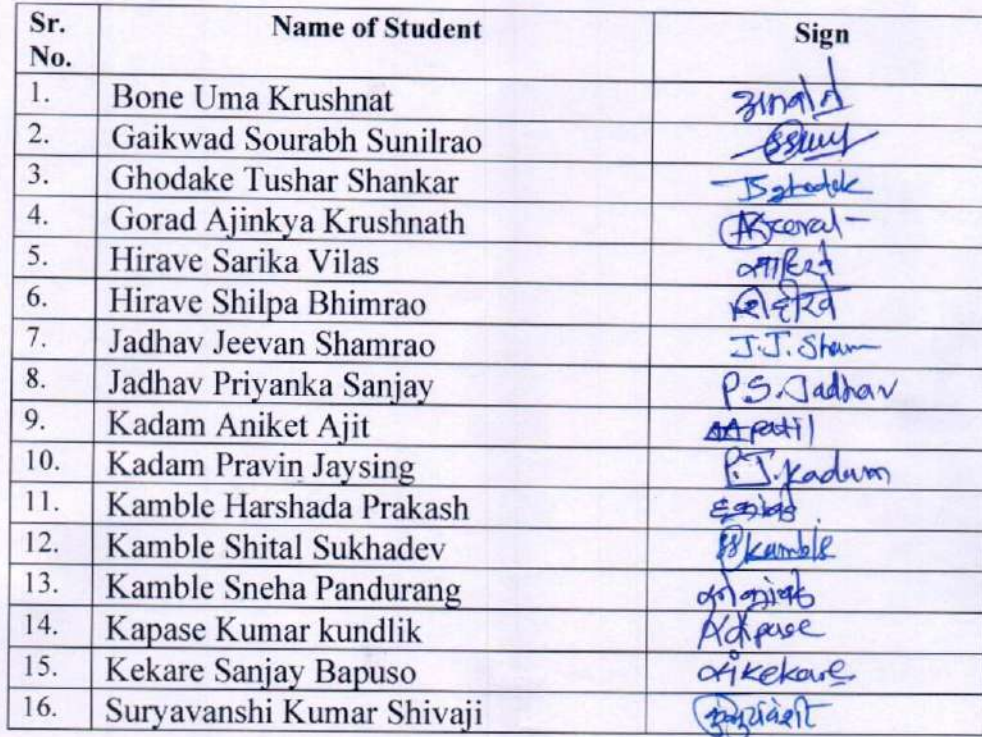 Sr. No. Name of Student Sign
1. Bone Uma Krushnat
2. Gaikwad Sourabh Sunilrao
3. Ghodake Tushar Shankar
4. Gorad Ajinkya Krushnath
5. Hirave Sarika Vilas
6. Hirave Shilpa Bhimrao
7. Jadhav Jeevan Shamrao J.J. Sham
8. Jadhav Priyanka Sanjay P.S. Jadhav
9. Kadam Aniket Ajit patil
10. Kadam Pravin Jaysing P.J. Kadam
11. Kamble Harshada Prakash
12. Kamble Shital Sukhadev kamble
13. Kamble Sneha Pandurang
14. Kapase Kumar kundlik
15. Kekare Sanjay Bapuso kekare
16. Suryavanshi Kumar Shivaji